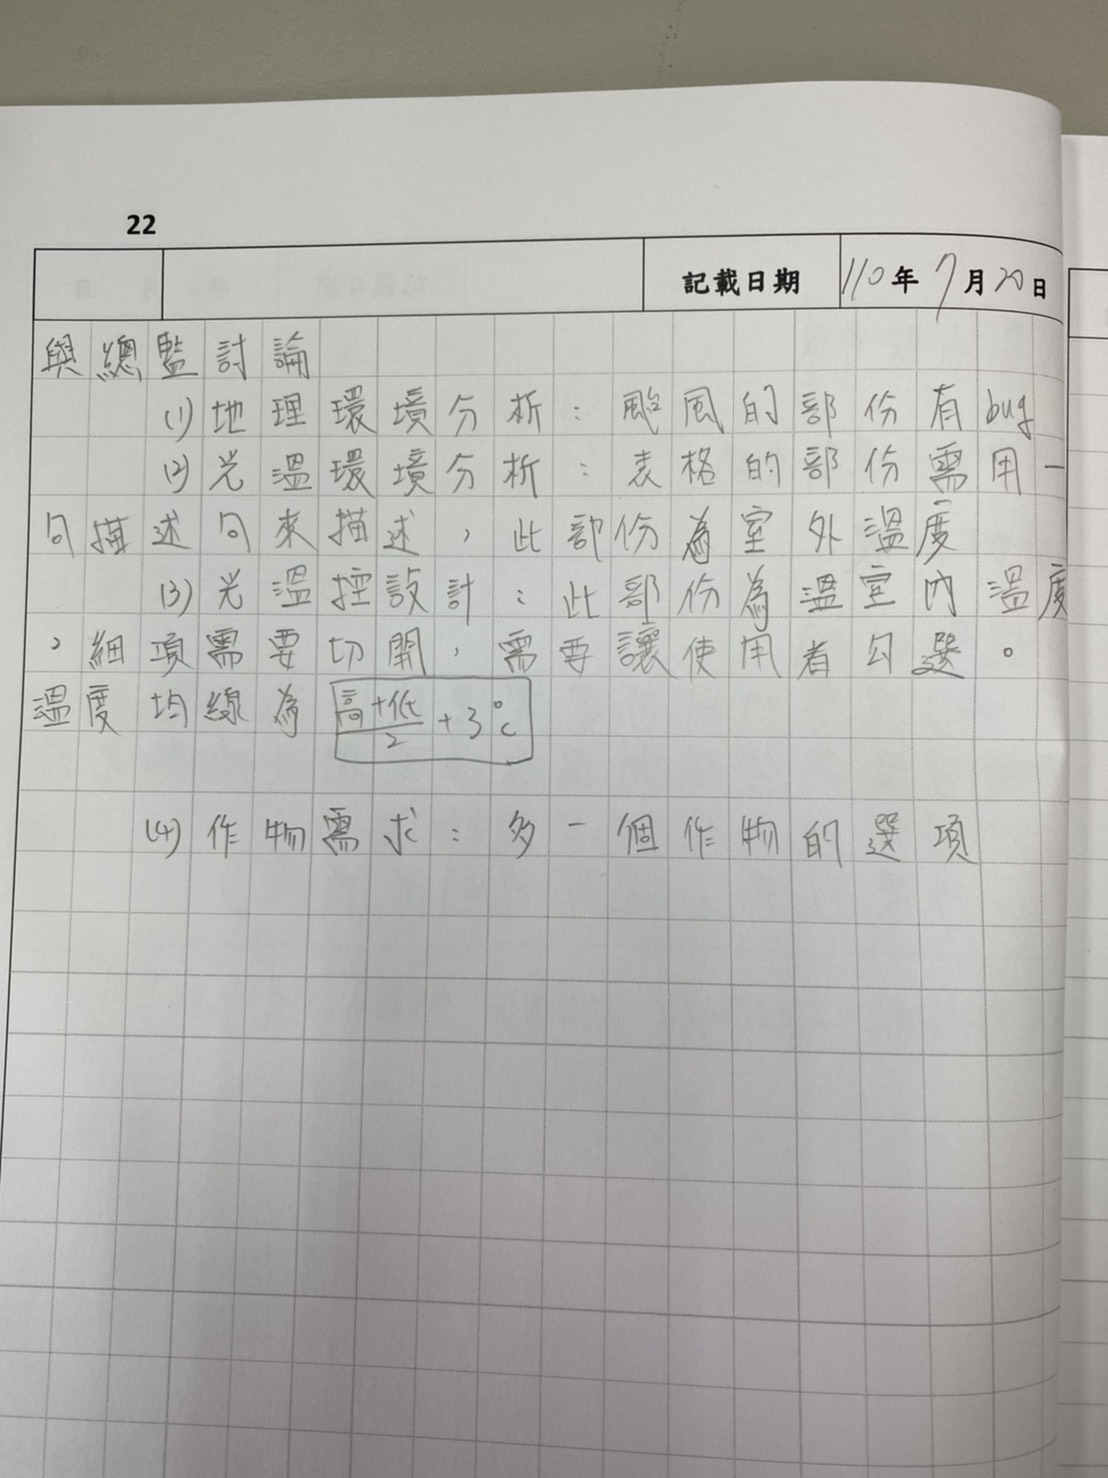 22
記載日期 110年7月20日
與總監討論
(1)地理環境分析:颱風的部份有bug
(2)光溫環境分析:表格的部份需用一
句描述句來描述,此部份為室外溫度
(3)光溫控設計:此部份為溫室內溫度
,細項需要切開,需要讓使用者勾選。
溫度均線為 (高+低)/2 +3℃
(4)作物需求:多一個作物的選項